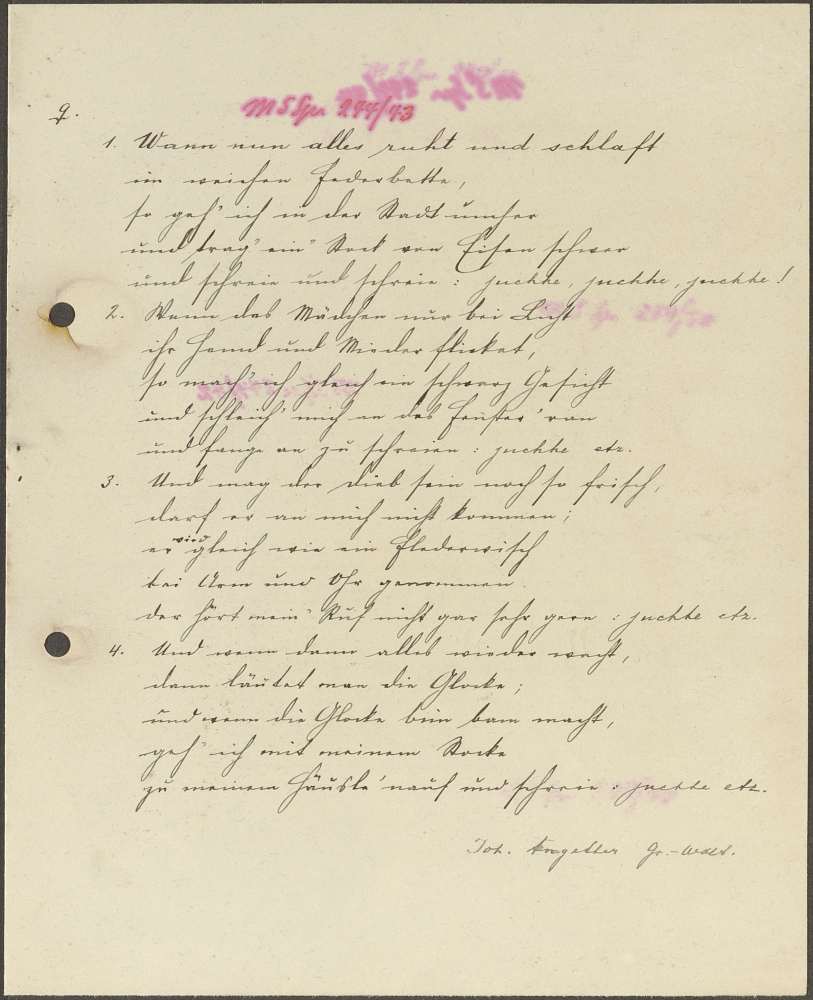 MSSpr 244/43
9.
1. Wann nun alles ruht und schlaft
im weichen Federbette,
so geh' ich in der Stadt umher
und trag' ein' Stock von Eisen schwer
und schreie und schreie : juchhe, juchhe, juchhe!
2. Wenn das Mädchen nur bei Licht
ihr Hemd und Mieder flicket,
so mach' ich gleich ein schwarz Gesicht
und schleich' mich an das Fenster 'ran
und fange an zu schreien : juchhe etz.
3. Und mag der Dieb sein noch so frisch,
darf er an mich nicht kommen;
er wird gleich wie ein Flederwisch
bei Arm und Ohr genommen.
der hört mein' Ruf nicht gar sehr gern : juchhe etz.
4. Und wenn dann alles wieder wacht,
dann läutet man die Glocke;
und wenn die Glocke bim bam macht,
geh' ich mit meinem Stocke
zu meinem Häusle 'nauf und schreie : juchhe etz.
Joh. Gr.-Wald.